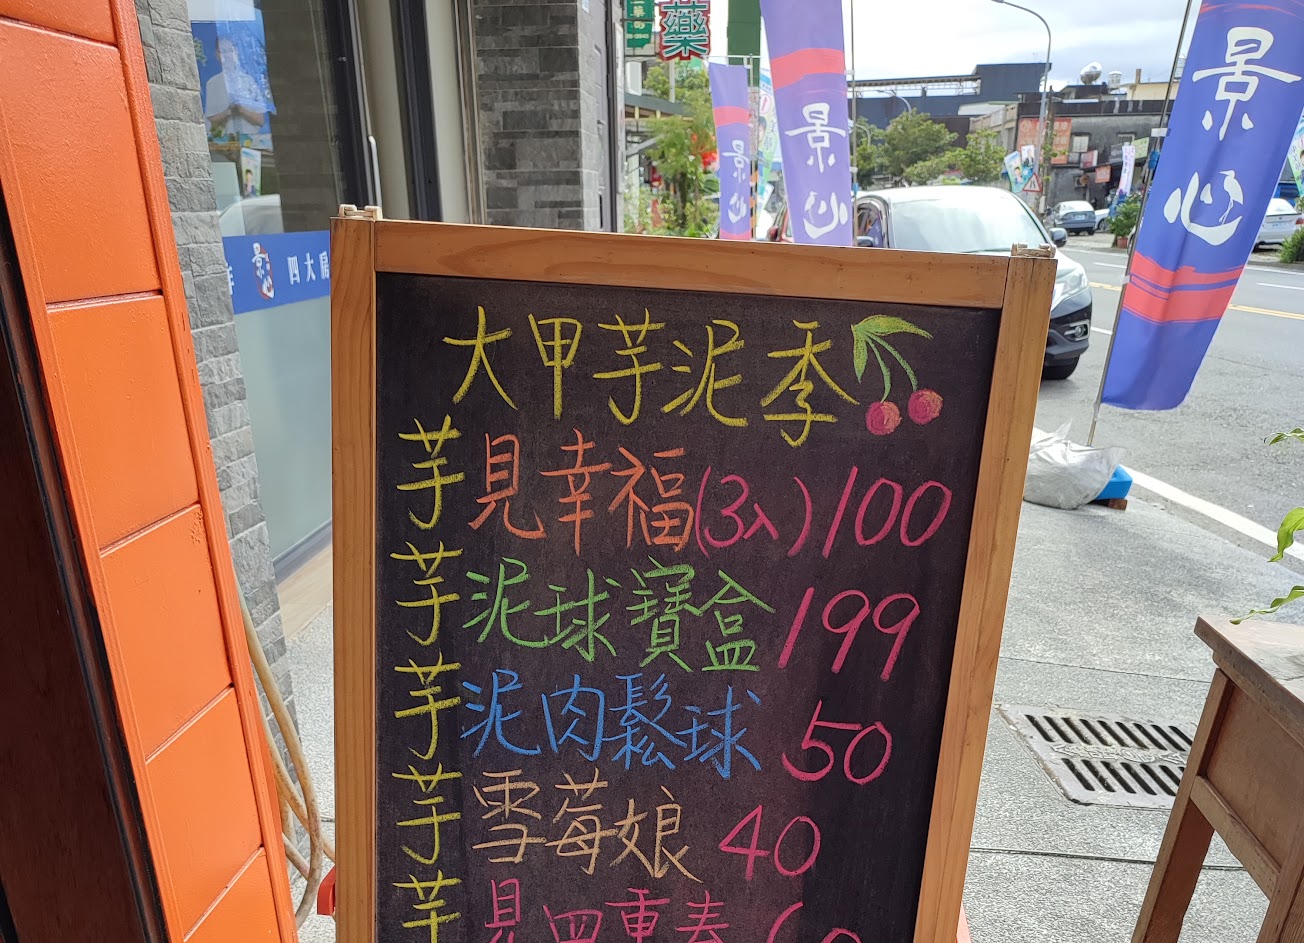 藥
景心
景心
景心
景心 四大房
大甲芋泥季
芋見幸福(3入)100
芋泥球寶盒199
芋泥肉鬆球 50
芋雪莓娘 40
芋見四重奏 60